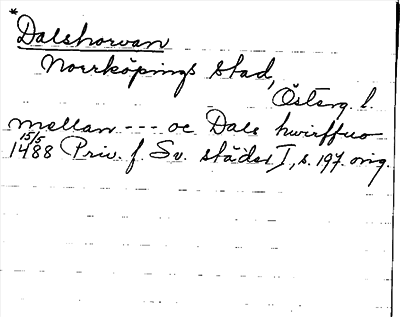 *
Dalshorvan
Norrköpings stad,
Österg. l.
mellan --- oc Dals hwirffuo
15/5
1488 Priv. f. Sv. städer I, s. 197. orig.